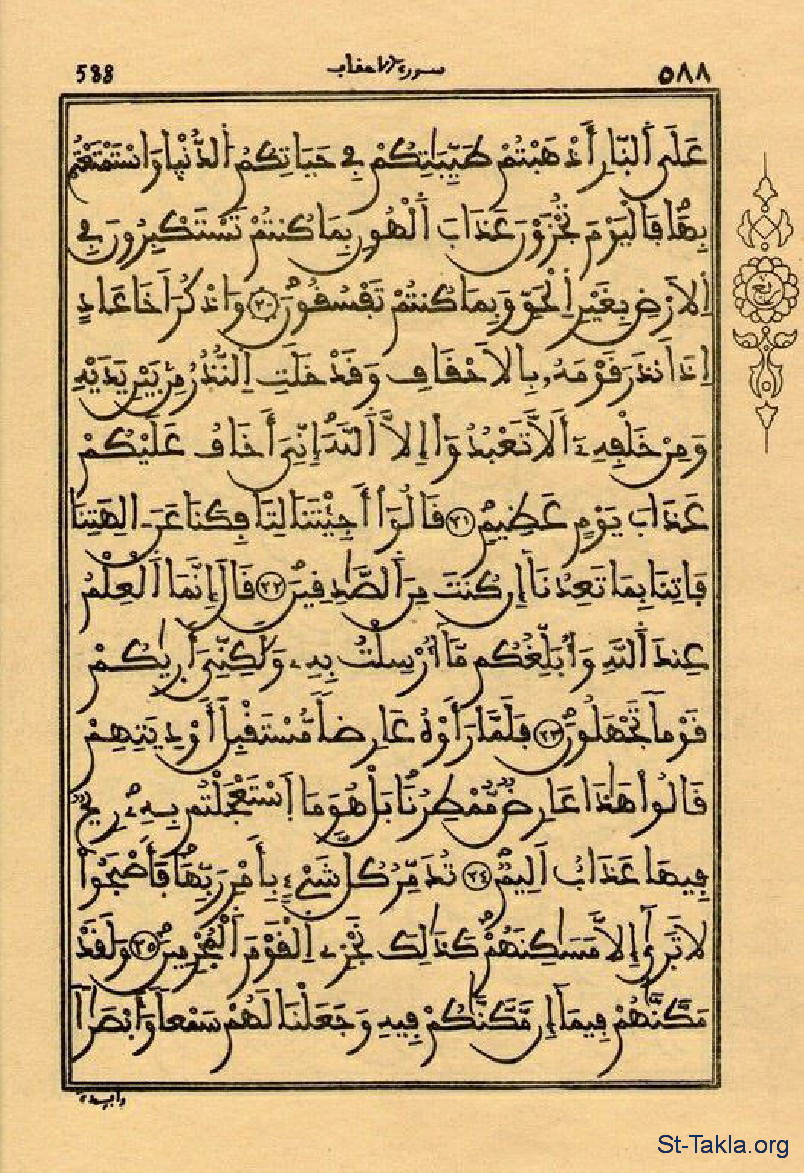 ٥٨٨ سورة الاحقاف 588
عَلَى اَ۬لنّ۪ارِ أَذْهَبْتُمْ طَيِّبَٰتِكُمْ فِے حَيَاتِكُمُ اُ۬لدُّنْي۪ا وَاسْتَمْتَعْتُم
بِهَا فَالْيَوْمَ تُجْزَوْنَ عَذَابَ اَ۬لْهُونِ بِمَا كُنتُمْ تَسْتَكْبِرُونَ فِے
اِ۬لَارْضِ بِغَيْرِ اِ۬لْحَقِّ وَبِمَا كُنتُمْ تَفْسُقُونَ ٢٠ وَاذْكُرَ اَخَا عَادٍ
اِذَ اَنذَرَ قَوْمَهُۥ بِالَاحْقَافِ وَقَدْ خَلَتِ اِ۬لنُّذُرُ مِنۢ بَيْنِ يَدَيْهِ
وَمِنْ خَلْفِهِۦٓ أَلَّا تَعْبُدُوٓاْ إِلَّا اَ۬للَّهَ إِنِّيَ أَخَافُ عَلَيْكُمْ
عَذَابَ يَوْمٍ عَظِيمٍ ٢١ قَالُوٓاْ أَجِيْتَنَا لِتَافِكَنَا عَنَ ـالِهَتِنَا
فَاتِنَا بِمَا تَعِدُنَآ إِن كُنتَ مِنَ اَ۬لصَّٰدِقِينَ ٢٢ قَالَ إِنَّمَا اَ۬لْعِلْمُ
عِندَ اَ۬للَّهِ وَأُبَلِّغُكُم مَّآ أُرْسِلْتُ بِهِۦ وَلَٰكِنِّيَ أَر۪يٰكُمْ
قَوْماً تَجْهَلُونَ ٢٣ فَلَمَّا رَأَوْهُ عَارِضاً مُّسْتَقْبِلَ أَوْدِيَتِهِمْ
قَالُواْ هَٰذَا عَارِضٌ مُّمْطِرُنَا بَلْ هُوَ مَا اَ۪سْتَعْجَلْتُم بِهِۦ رِيحٌ
فِيهَا عَذَابٌ اَلِيمٌ ٢٤ تُدَمِّرُ كُلَّ شَےْءِۢ بِأَمْرِ رَبِّهَا فَأَصْبَحُواْ
لَا تَر۪ىٰٓ إِلَّا مَسَٰكِنَهُمْ كَذَٰلِكَ نَجْزِے اِ۬لْقَوْمَ اَ۬لْمُجْرِمِينَ ٢٥ وَلَقَدْ
مَكَّنَّٰهُمْ فِيمَآ إِن مَّكَّنَّٰكُمْ فِيهِ وَجَعَلْنَا لَهُمْ سَمْعاً وَأَبْصَٰراً
وافيدة
St-Takla.org